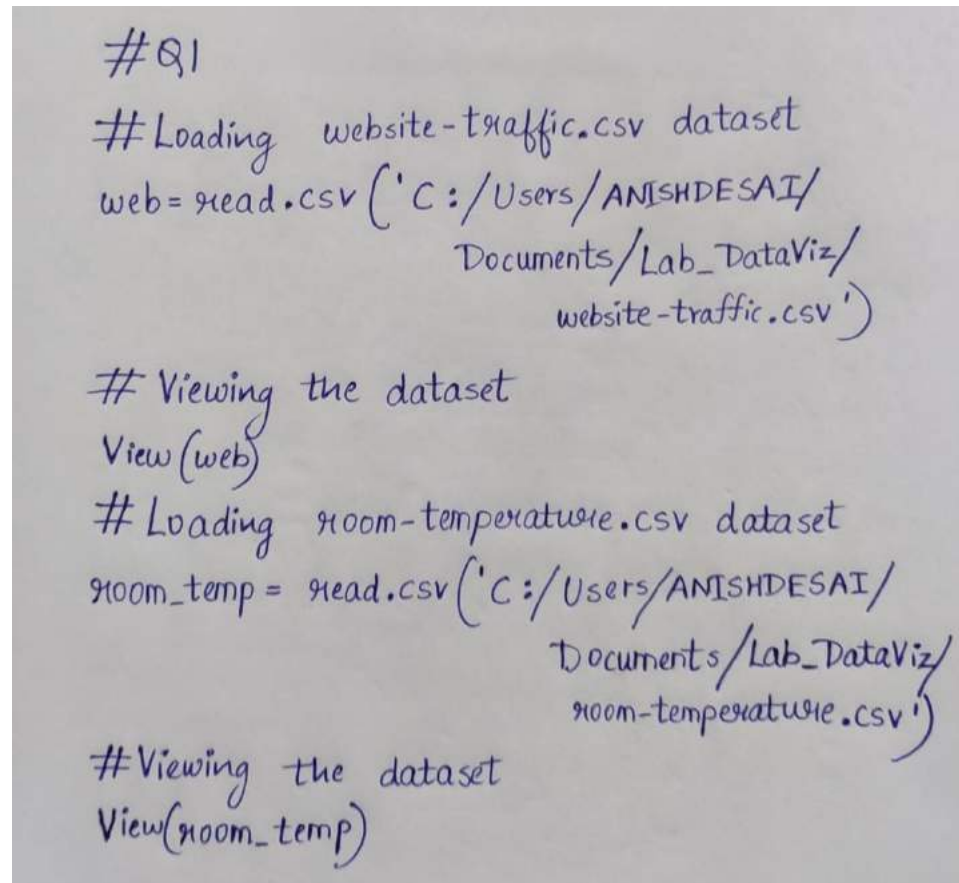 #Q1
# Loading website-traffic.csv dataset
web = read.csv('C:/Users/ANISHDESAI/
Documents/Lab_DataViz/
website-traffic.csv')
# Viewing the dataset
View(web)
# Loading room-temperature.csv dataset
room_temp = read.csv('C:/Users/ANISHDESAI/
Documents/Lab_DataViz/
room-temperature.csv')
#Viewing the dataset
View(room_temp)